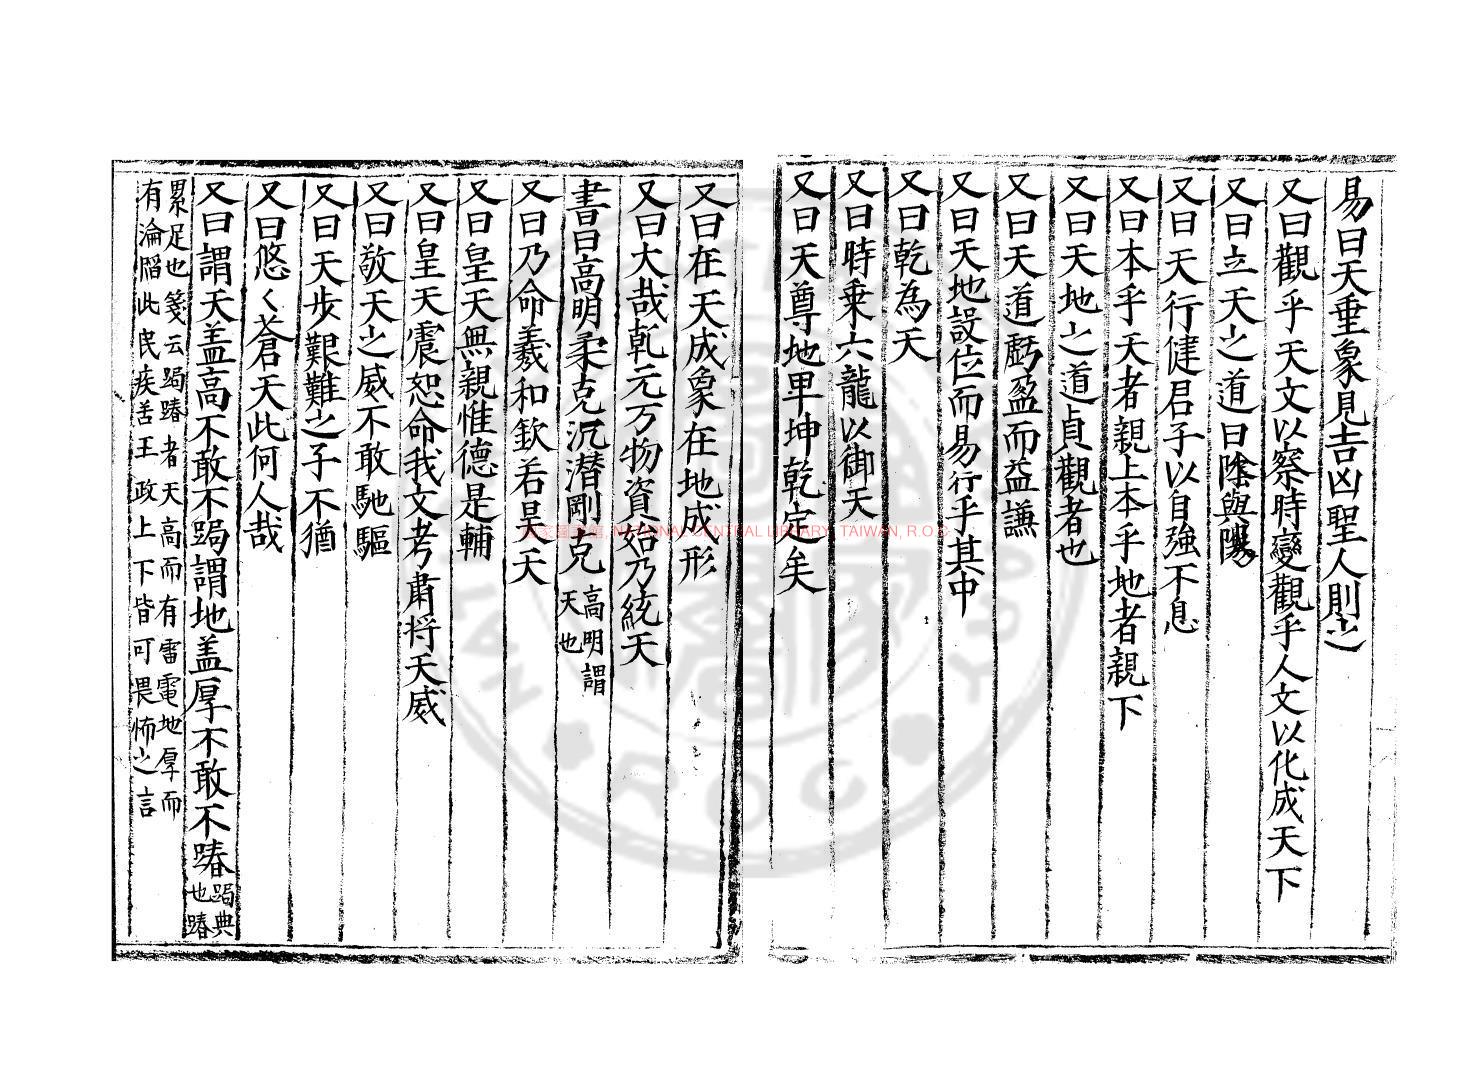 易曰天垂象見吉凶聖人則之
又曰觀乎天文以察時變觀乎人文以化成天下
又曰立天之道曰陰與陽
又曰天行健君子以自強不息
又曰本乎天者親上本乎地者親下
又曰天地之道貞觀者也
又曰天道虧盈而益謙
又曰天地設位而易行乎其中
又曰乾為天
又曰時乗六龍以御天
又曰天尊地卑坤乾定矣
又曰在天成象在地成形
又曰大哉乾元万物資始乃統天
書曰高明柔克沉潜剛克高明謂天也
又曰乃命羲和欽若昊天
又曰皇天無親惟德是輔
又曰皇天震恕命我文考肅将天威
又曰敬天之威不敢馳驅
又曰天步艱難之子不猶
又曰悠〻蒼天此何人哉
又曰謂天盖高不敢不跼謂地盖厚不敢不蹐跼典也蹐
累足也箋云跼蹐者天高而有雷電地厚而
有淪䧟此民疾苦王政上下皆可畏怖之言
國家圖書館, NATIONAL CENTRAL LIBRARY, TAIWAN, R.O.C